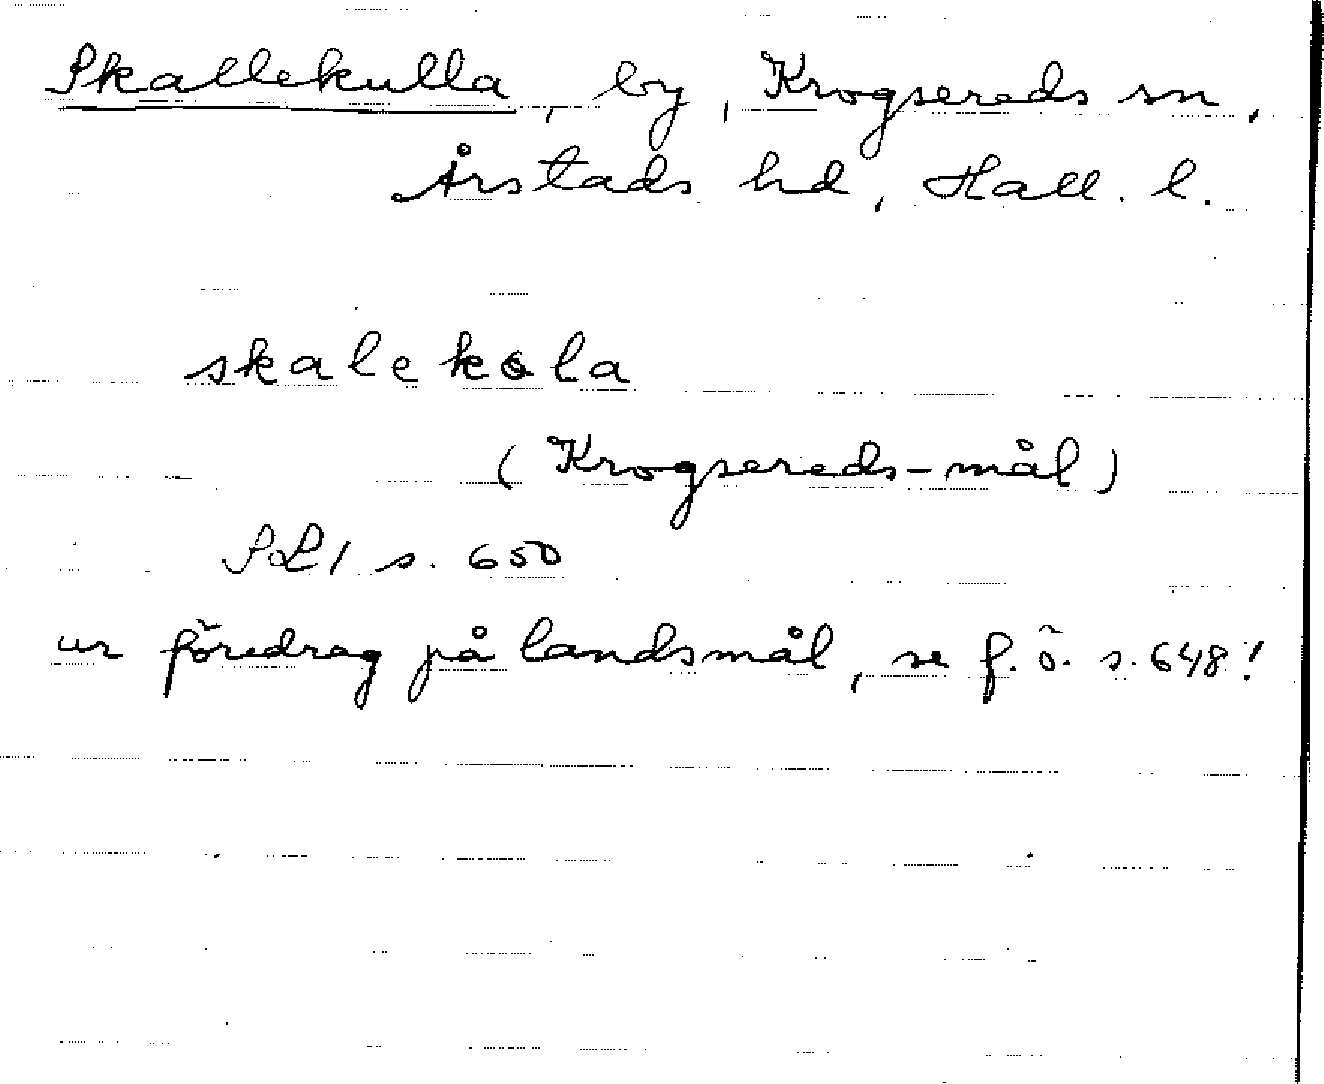 Skallekulla, by, Krogsereds sn,
Årstads hd, Hall. l.
skalekola
(Krogsereds-mål)
SL1 s. 650
ur föredrag på landsmål, se f. ö. s. 648!